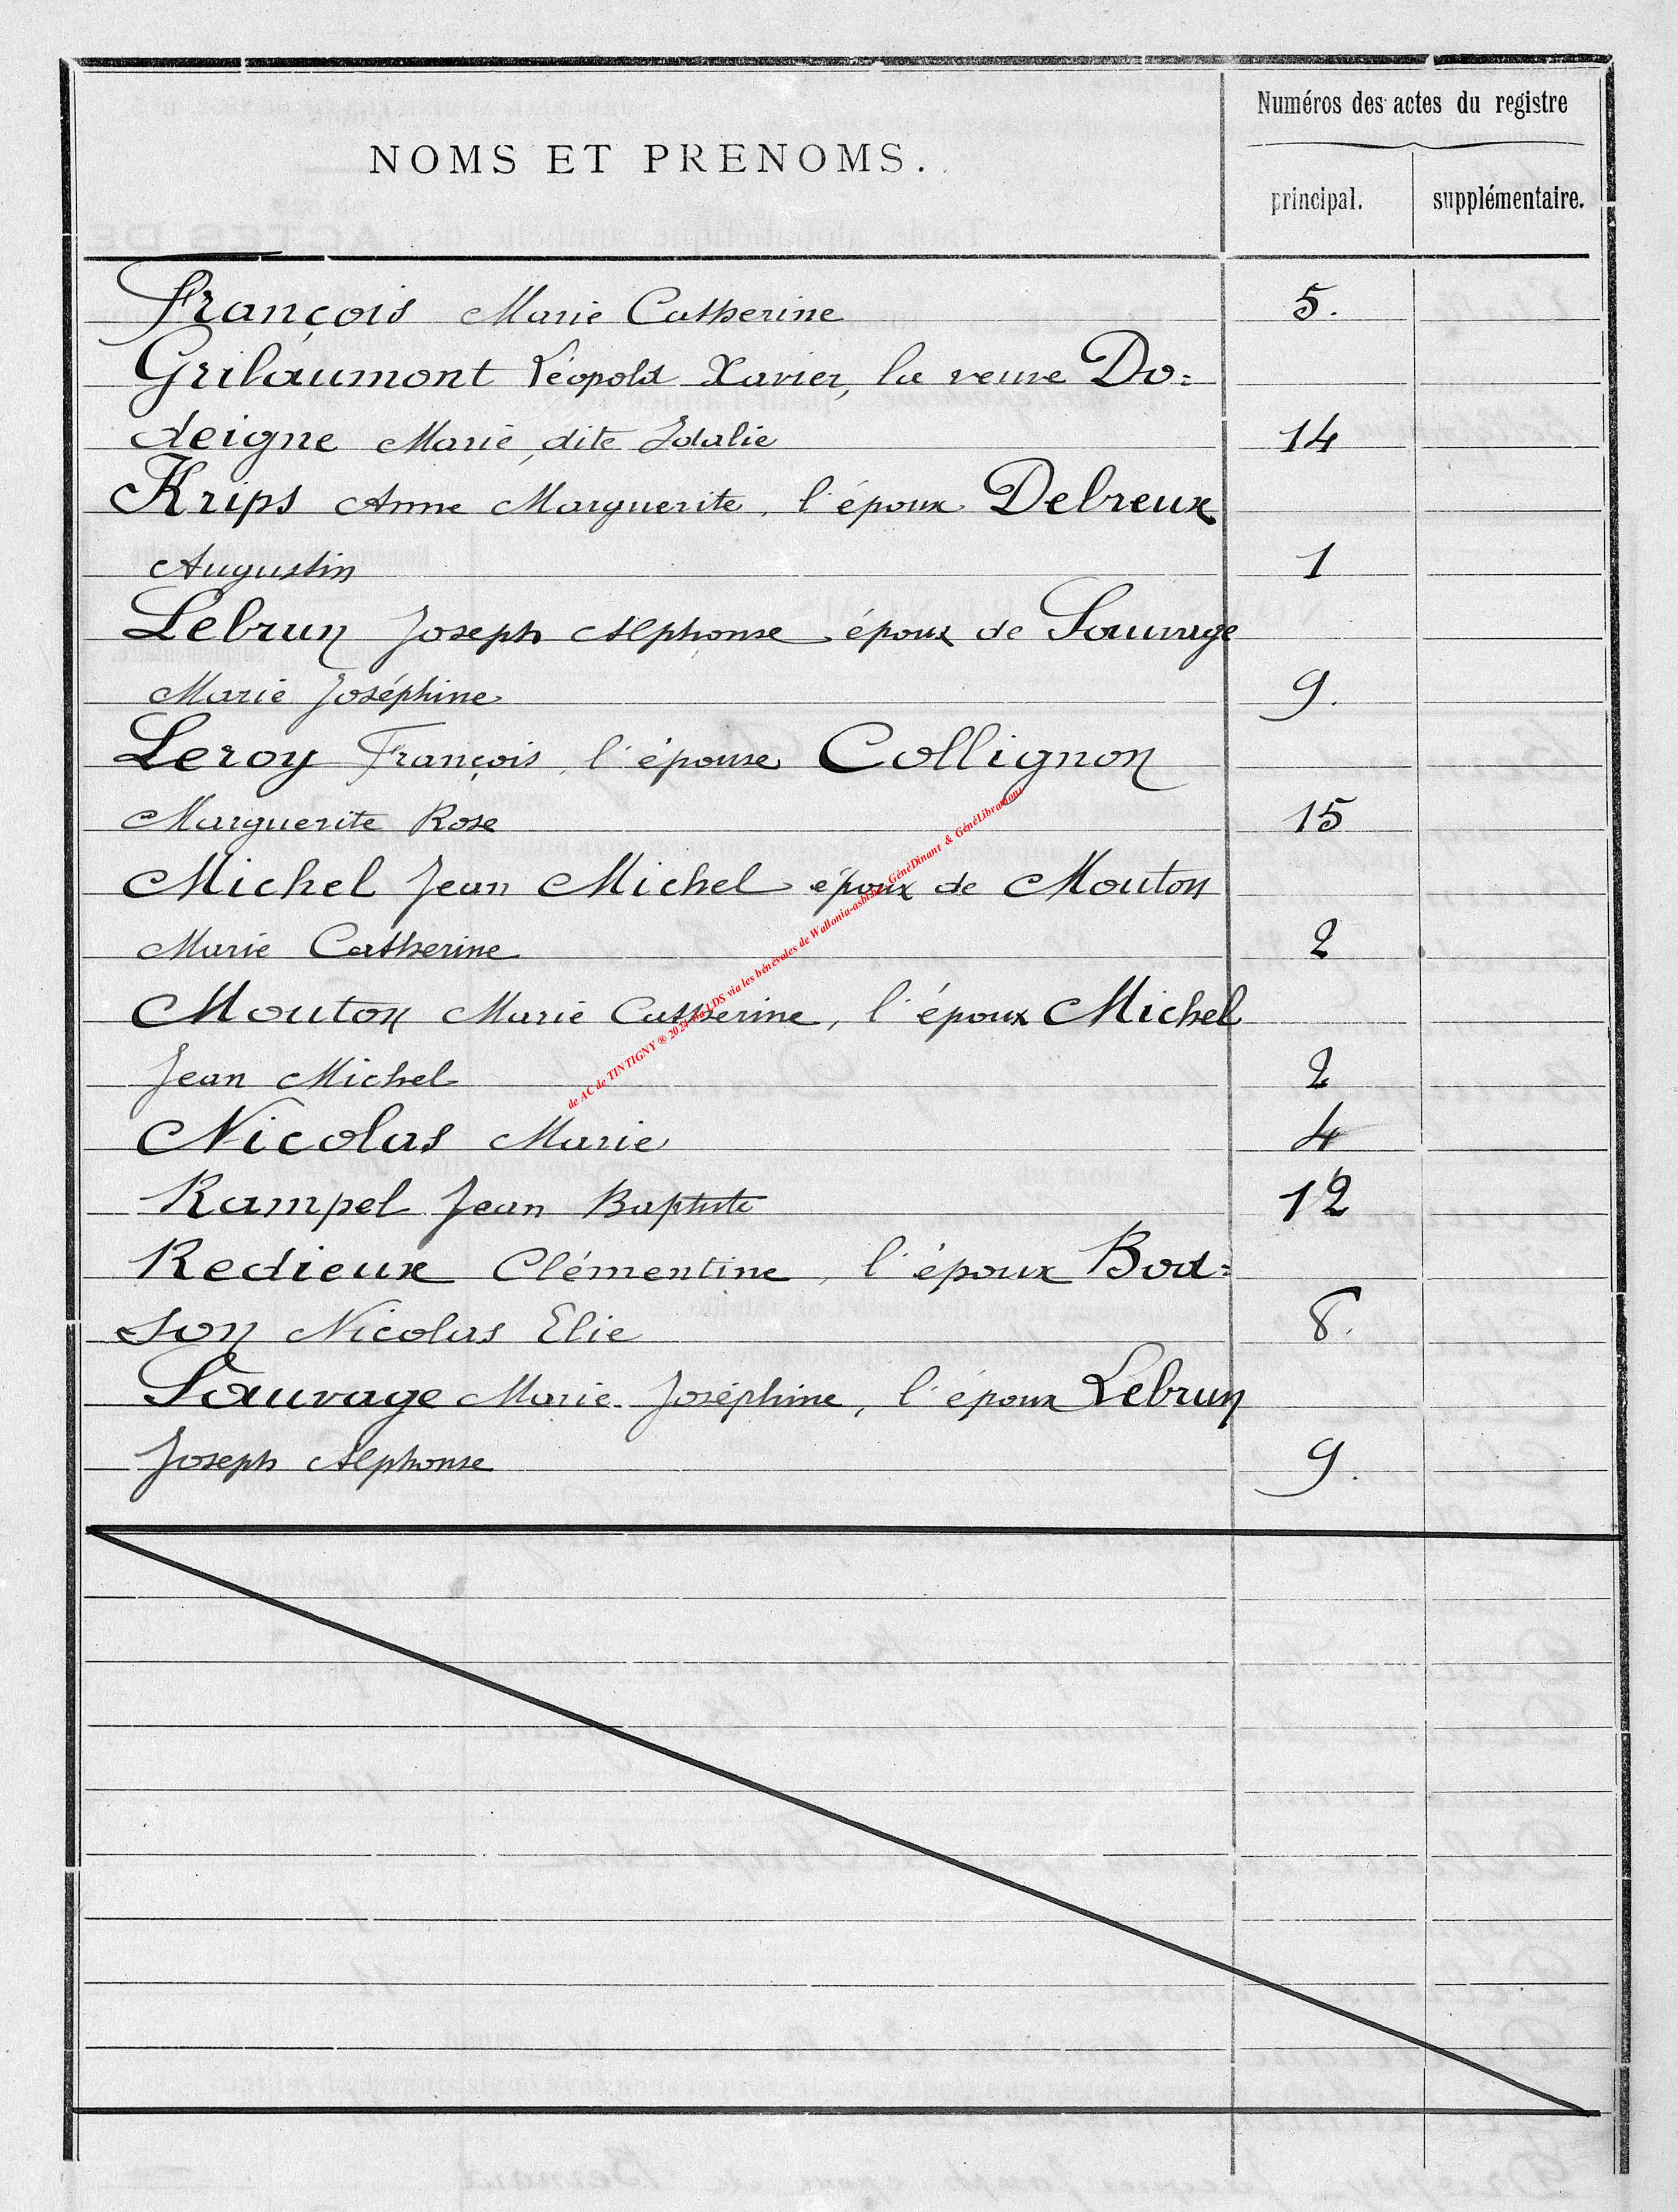 NOMS ET PRENOMS.
Numéros des actes du registre
principal.
supplémentaire.
François Marie Catherine 5.
Grilaumont Léopold Xavier, la veuve Do=
deigne Marie, dite Idalie 14
Krips Anne Marguerite, l'époux Debreux
Augustin 1
Lebrun Joseph Alphonse époux de Sauvage
Marie Joséphine 9.
Leroy François, l'épouse Collignon
Marguerite Rose 15
Michel Jean Michel époux de Mouton
Marie Catherine 2
Mouton Marie Catherine, l'époux Michel
Jean Michel 2
Nicolas Marie 4
Rampel Jean Baptiste 12
Redieux Clémentine, l'époux Bod=
son Nicolas Elie 8.
Sauvage Marie Joséphine, l'époux Lebrun
Joseph Alphonse 9.
de AC de TINTIGNY ® 2024 via LDS via les bénévoles de Wallonia-asbl & GénéDinant & GénéLibramont